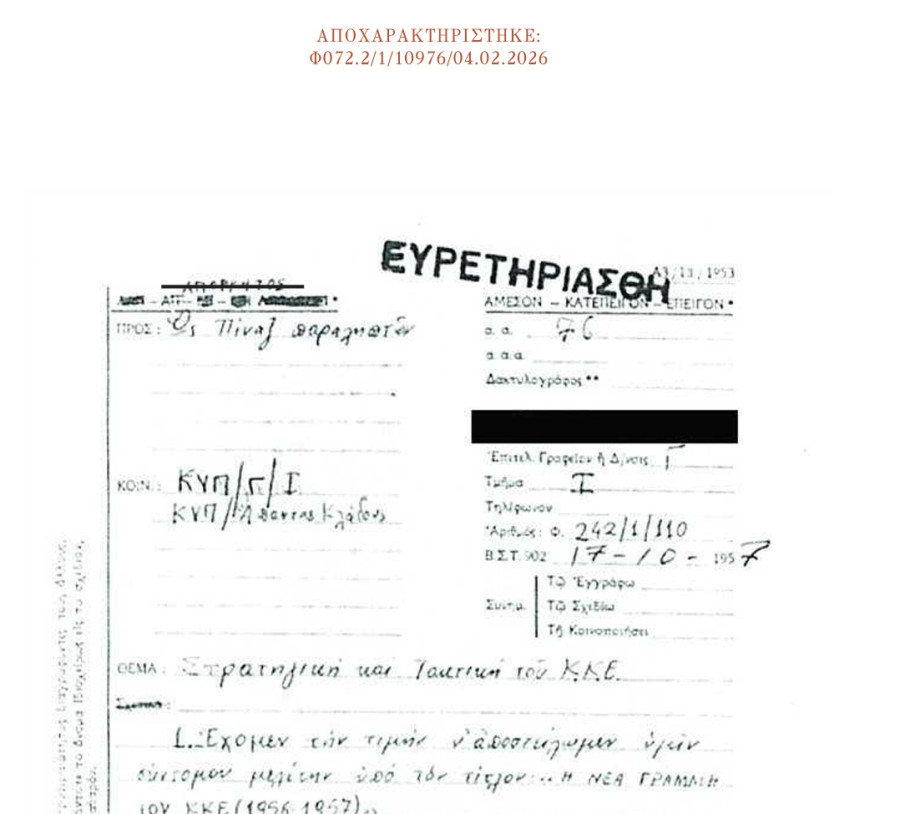 ΑΠΟΧΑΡΑΚΤΗΡΙΣΤΗΚΕ:
Φ072.2/1/10976/04.02.2026
ΕΥΡΕΤΗΡΙΑΣΘΗ
/1953
ΑΜΕΣΟΝ – ΚΑΤΕΠΕΙΓΟΝ – ΕΠΕΙΓΟΝ *
ΠΡΟΣ: Ὡς Πίναξ παραληπτῶν
α. α. 76
α. α.α.
Δακτυλογράφος **
Ἐπιτελ. Γραφεῖον ἢ Δ/νσις Γ
Τμῆμα Ι
Τηλέφωνον
Ἀριθμός: Φ. 242/1/110
Β.Σ.Τ. 902 17-10- 1957
ΚΟΙΝ.: ΚΥΠ/Γ/Ι
ΚΥΠ/Ἅπαντας Κλάδους
Συνημ.
Τῷ Ἐγγράφῳ
Τῷ Σχεδίῳ
Τῇ Κοινοποιήσει
ΘΕΜΑ: Στρατηγική καί Τακτική τοῦ Κ.Κ.Ε.
1. Ἔχομεν τήν τιμήν ν' ἀποστείλωμεν ὑμῖν
σύντομον μελέτην ὑπό τόν τίτλον: Η ΝΕΑ ΓΡΑΜΜΗ
τοῦ ΚΚΕ (1956-1957)